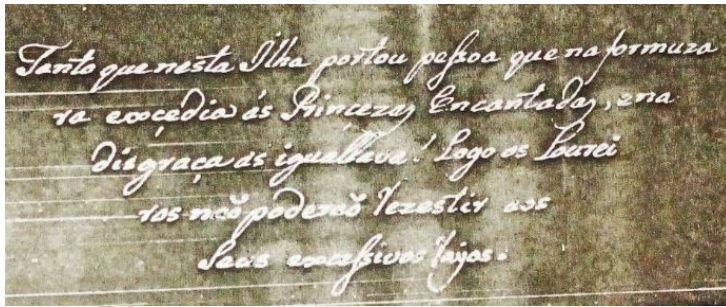 Tanto que nesta Ilha portou peſsoa que na formuza
ra excedia ás Princezas Encantadas, e na
disgraça ás iguallava! Logo os Lourei
ros não poderão rezestir aos
Seus exceſsivos rayos.